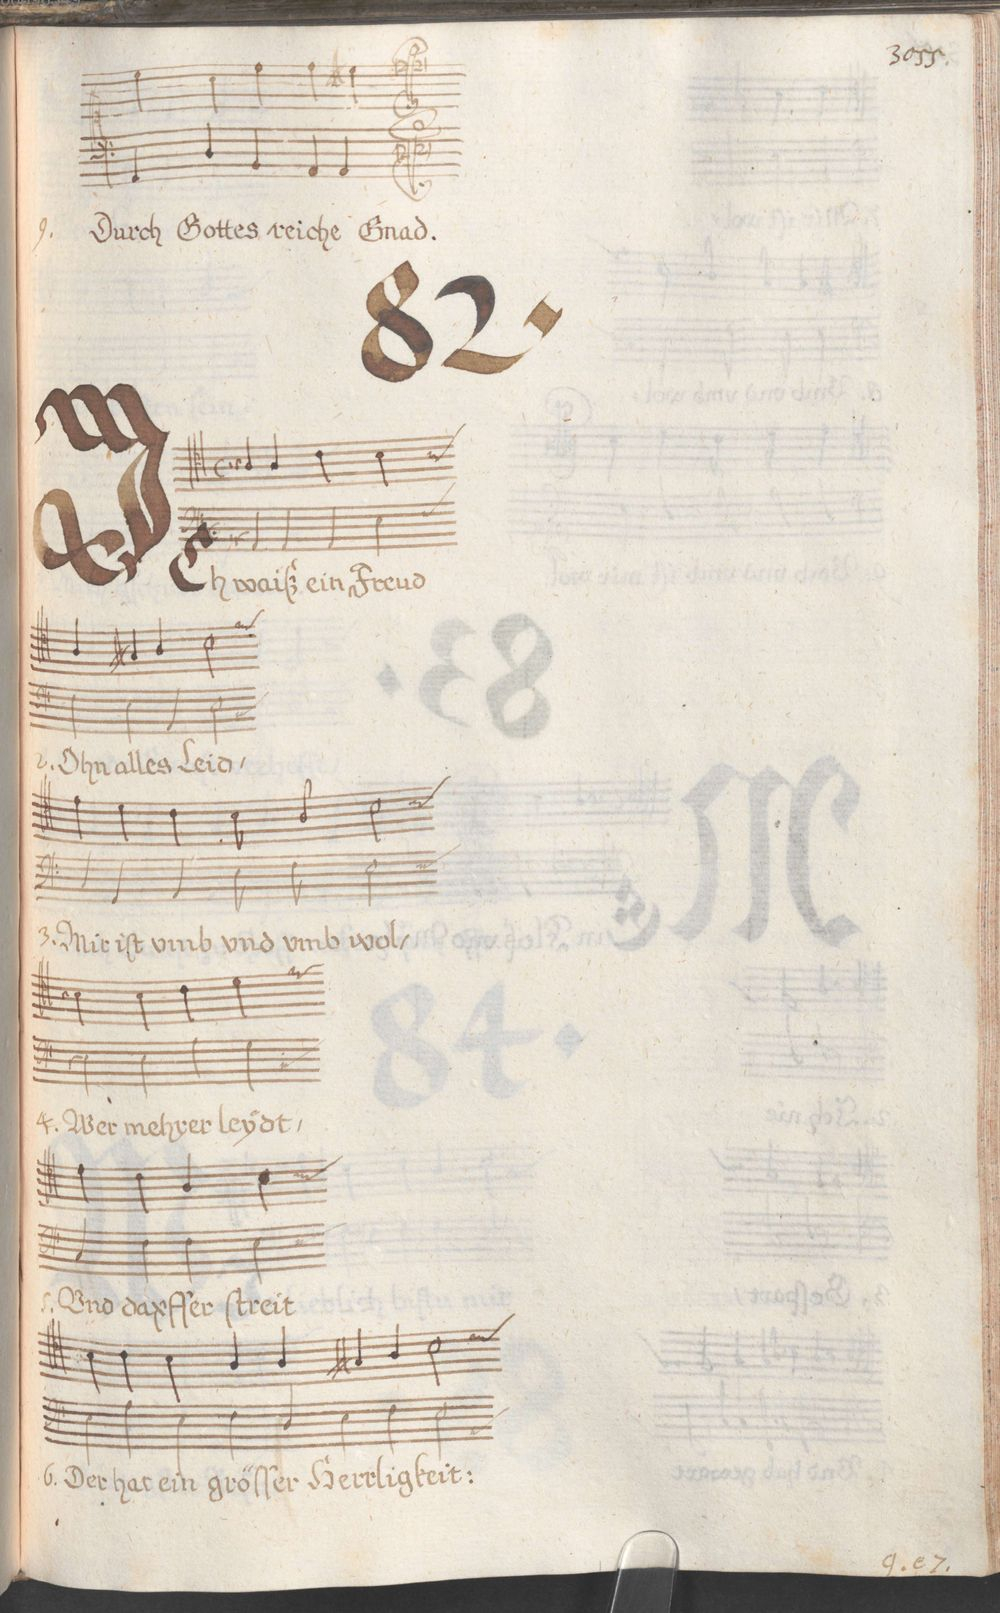 3055.
9. Durch Gottes reiche Gnad.
82.
ICh waiß ein Freud
2. Ohn alles Leid/
3. Mir ist vmb vnd vmb wol/
4. Wer mehrer leÿdt/
5. Vnd dapffer streit
6. Der hat ein grösser Herrligkeit: